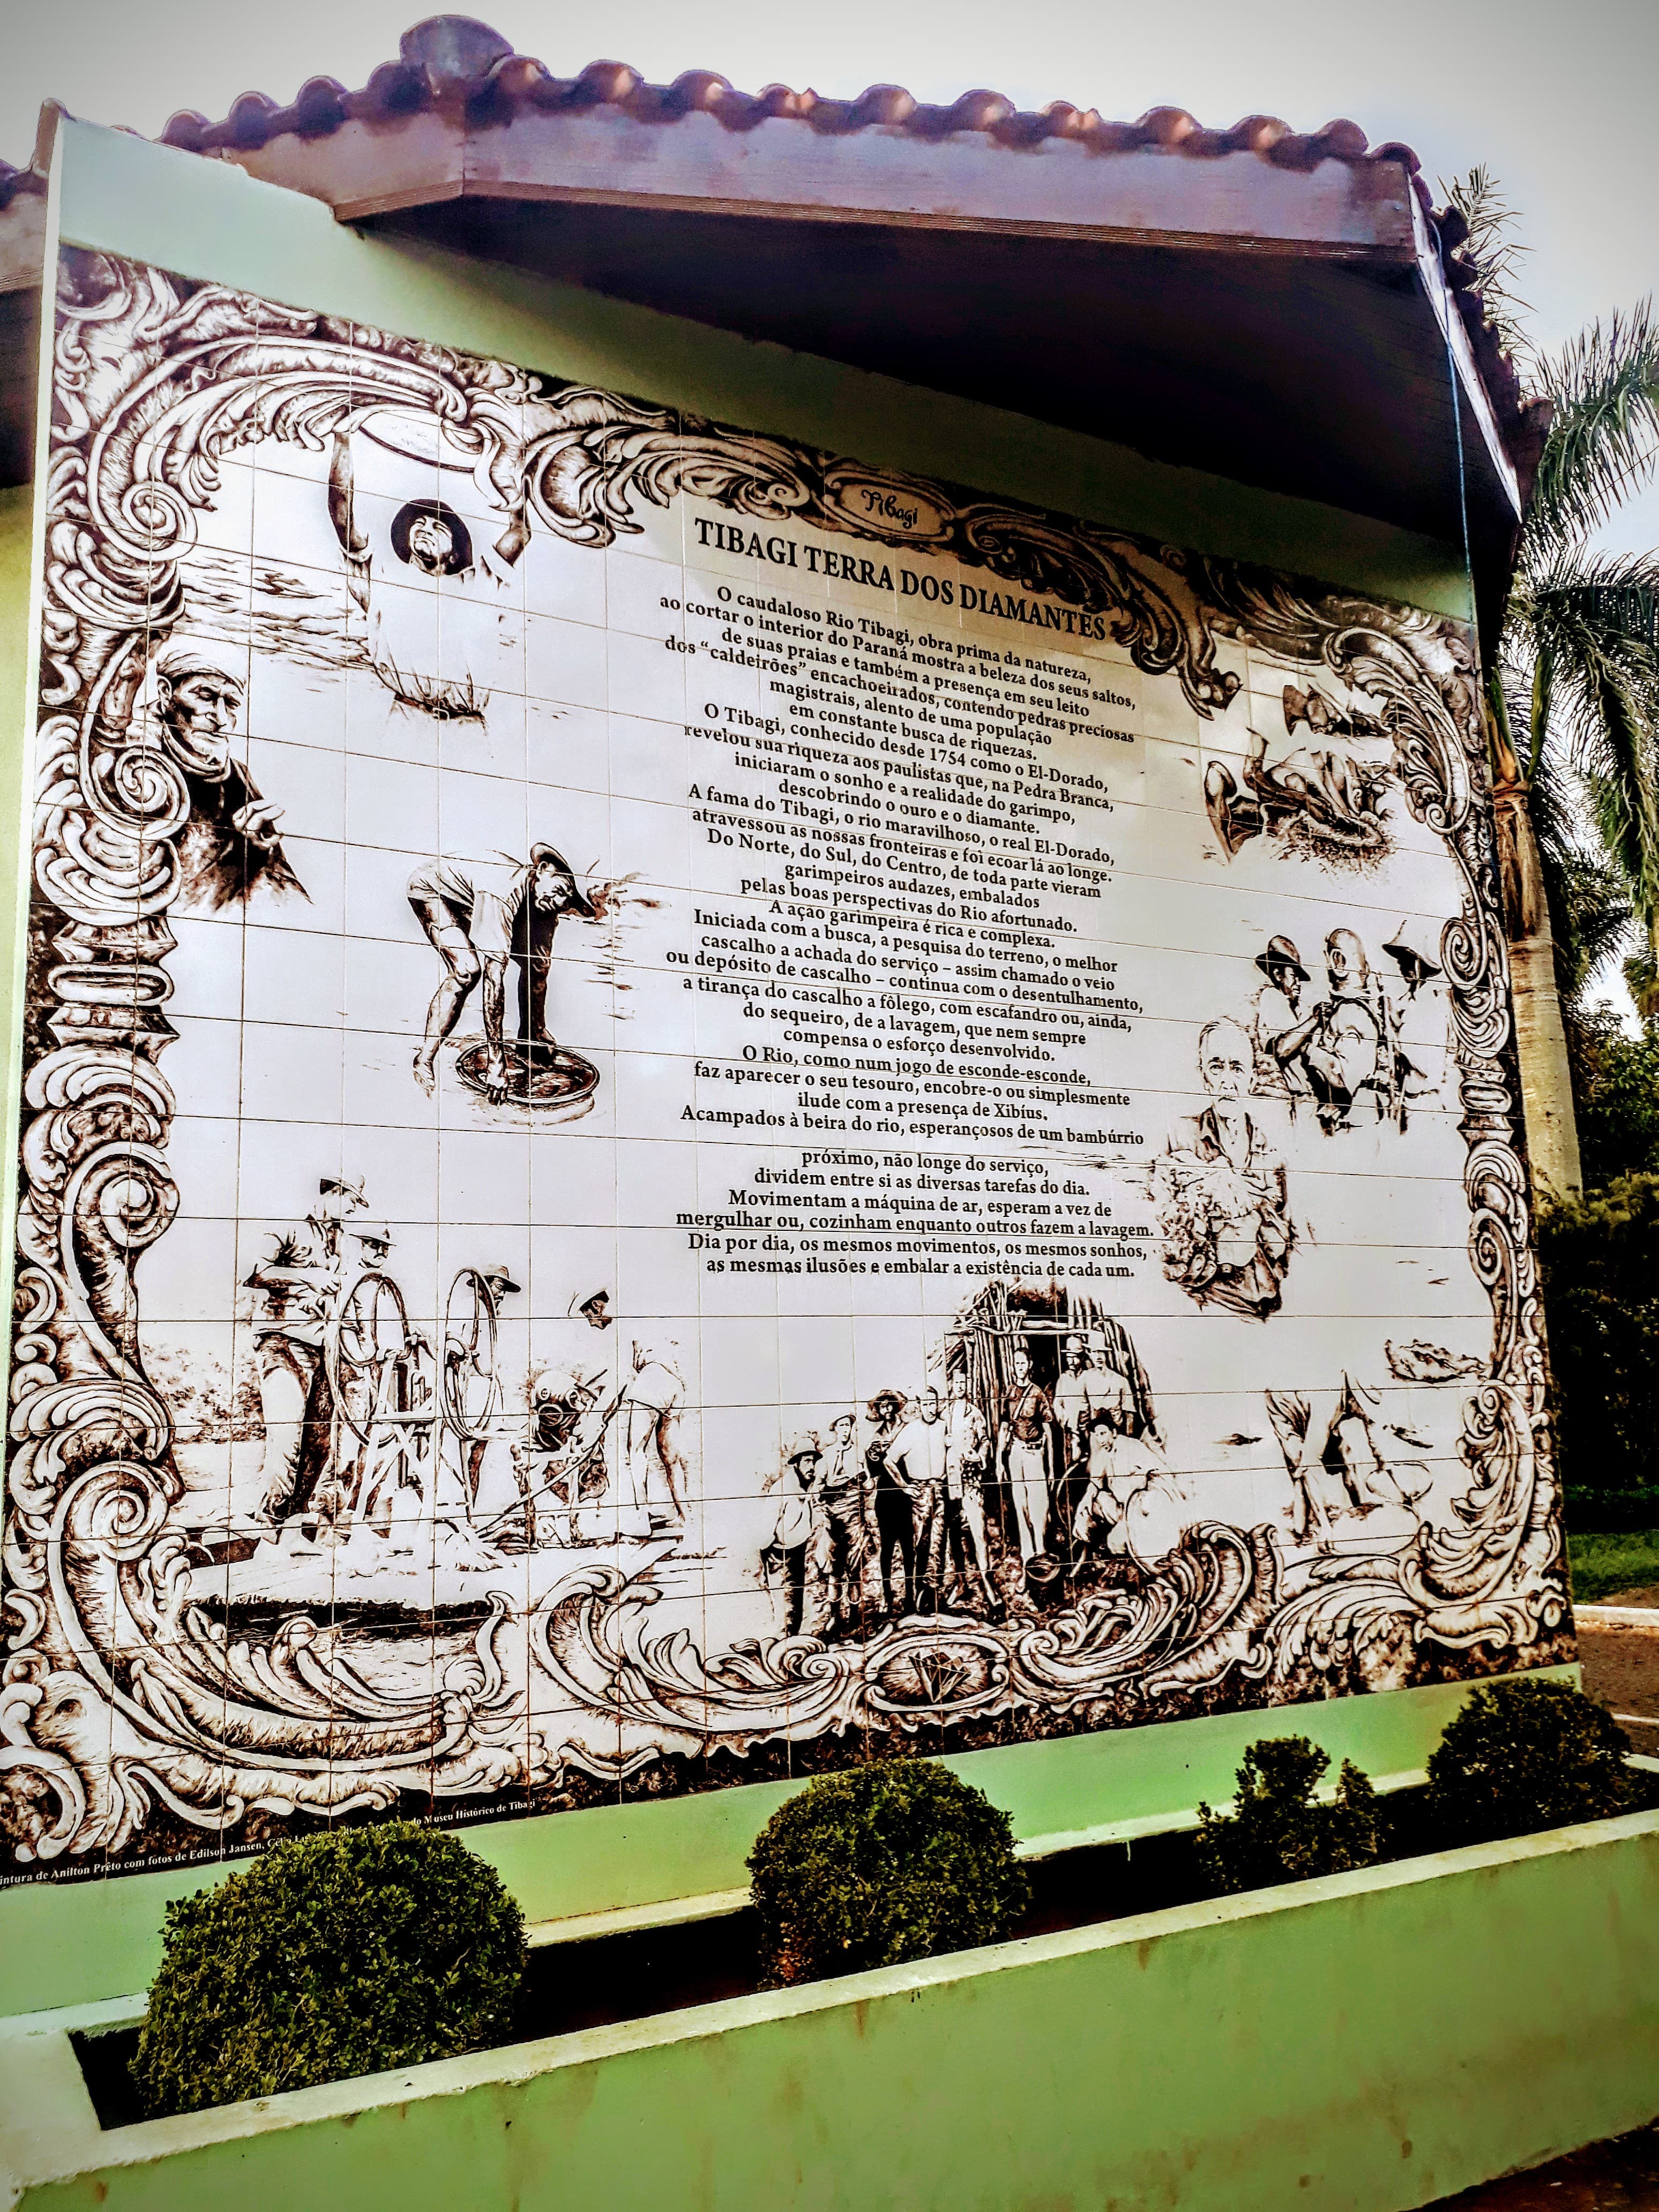 Tibagi
TIBAGI TERRA DOS DIAMANTES
O caudaloso Rio Tibagi, obra prima da natureza,
ao cortar o interior do Paraná mostra a beleza dos seus saltos,
de suas praias e também a presença em seu leito
dos “caldeirões” encachoeirados, contendo pedras preciosas
magistrais, alento de uma população
em constante busca de riquezas.
O Tibagi, conhecido desde 1754 como o El-Dorado,
revelou sua riqueza aos paulistas que, na Pedra Branca,
iniciaram o sonho e a realidade do garimpo,
descobrindo o ouro e o diamante.
A fama do Tibagi, o rio maravilhoso, o real El-Dorado,
atravessou as nossas fronteiras e foi ecoar lá ao longe.
Do Norte, do Sul, do Centro, de toda parte vieram
garimpeiros audazes, embalados
pelas boas perspectivas do Rio afortunado.
A ação garimpeira é rica e complexa.
Iniciada com a busca, a pesquisa do terreno, o melhor
cascalho a achada do serviço – assim chamado o veio
ou depósito de cascalho – continua com o desentulhamento,
a tirança do cascalho a fôlego, com escafandro ou, ainda,
do sequeiro, de a lavagem, que nem sempre
compensa o esforço desenvolvido.
O Rio, como num jogo de esconde-esconde,
faz aparecer o seu tesouro, encobre-o ou simplesmente
ilude com a presença de Xibíus.
Acampados à beira do rio, esperançosos de um bambúrrio
próximo, não longe do serviço,
dividem entre si as diversas tarefas do dia.
Movimentam a máquina de ar, esperam a vez de
mergulhar ou, cozinham enquanto outros fazem a lavagem.
Dia por dia, os mesmos movimentos, os mesmos sonhos,
as mesmas ilusões e embalar a existência de cada um.
intura de Anilton Prêto com fotos de Edilson Jansen, do Museu Histórico de Tibagi